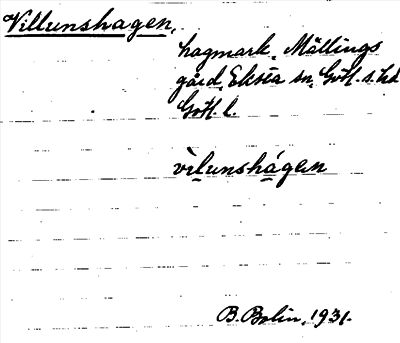 Villunshagen,
hagmark, Mållings
gård, Eksta sn, Gotl. s. hd
Gotl. l.
vìlunshágen
B. Bolin, 1931.